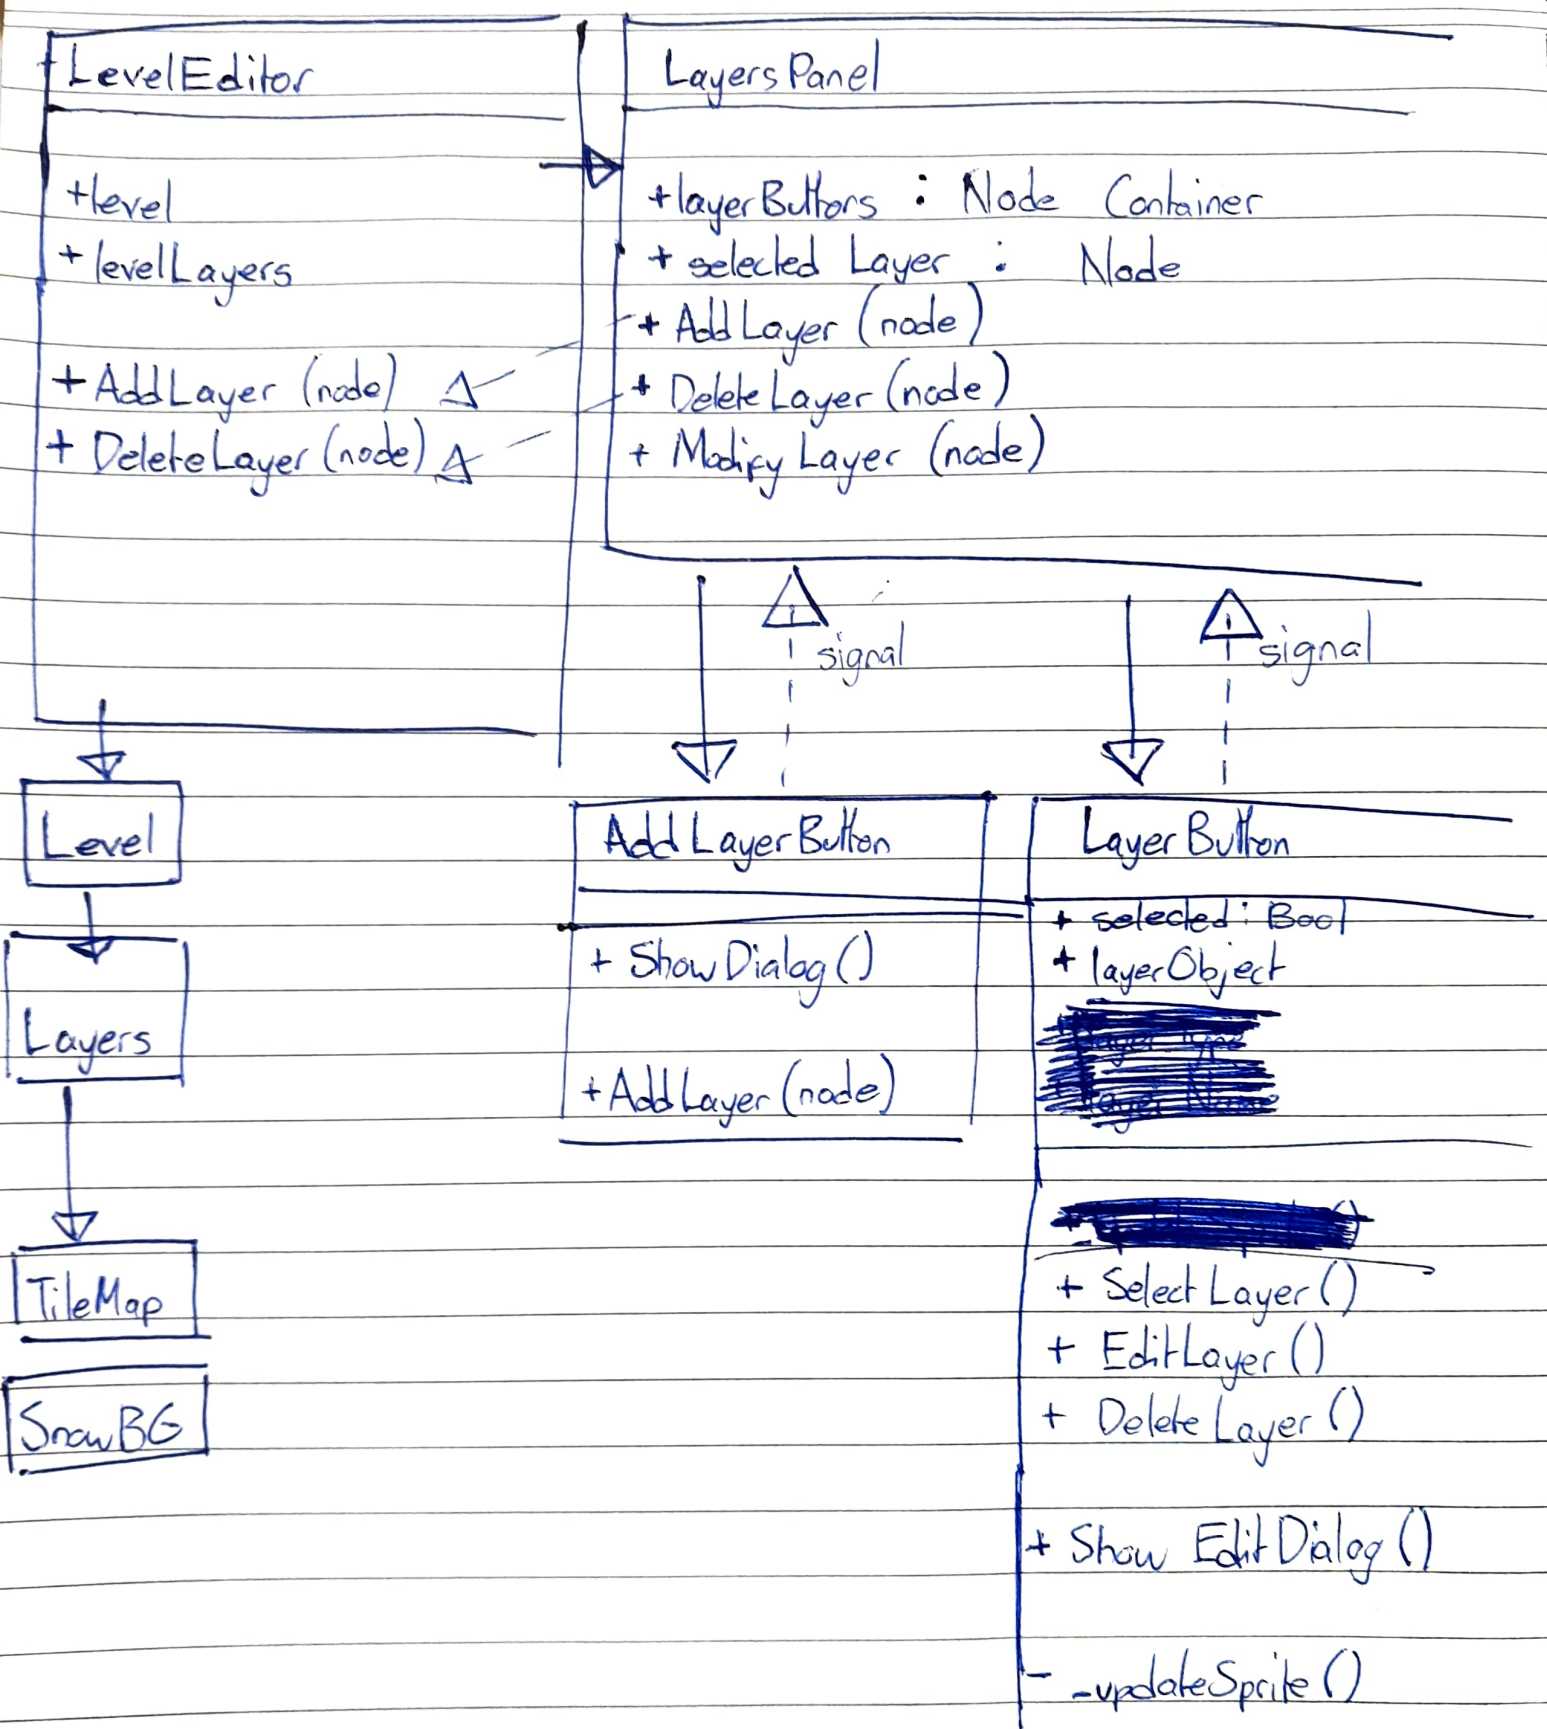 LevelEditor
+level
+ levelLayers
+ AddLayer (node)
+ DeleteLayer (node)
LayersPanel
+layerButtons : Node Container
+ selected Layer : Node
+ AddLayer (node)
+ DeleteLayer (node)
+ Modify Layer (node)
signal
signal
Level
Layers
TileMap
SnowBG
AddLayerButton
+ ShowDialog ()
+AddLayer (node)
LayerButton
+ selected : Bool
+ layerObject
+ SelectLayer ()
+ EditLayer ()
+ DeleteLayer ()
+ Show EditDialog ()
- _updateSprite ()